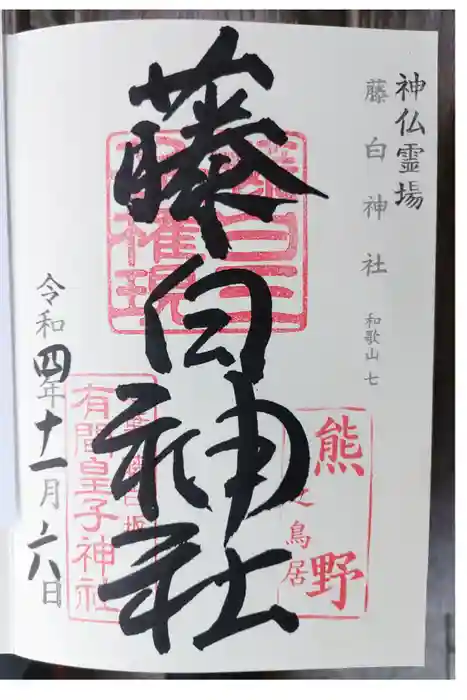 神仏霊場
藤白神社 和歌山 七
藤白神社
令和四年十一月六日
熊野
之鳥居
有間皇子神社